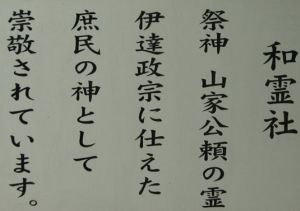 和霊社
祭神 山家公頼の霊
伊達政宗に仕えた
庶民の神として
崇敬されています。